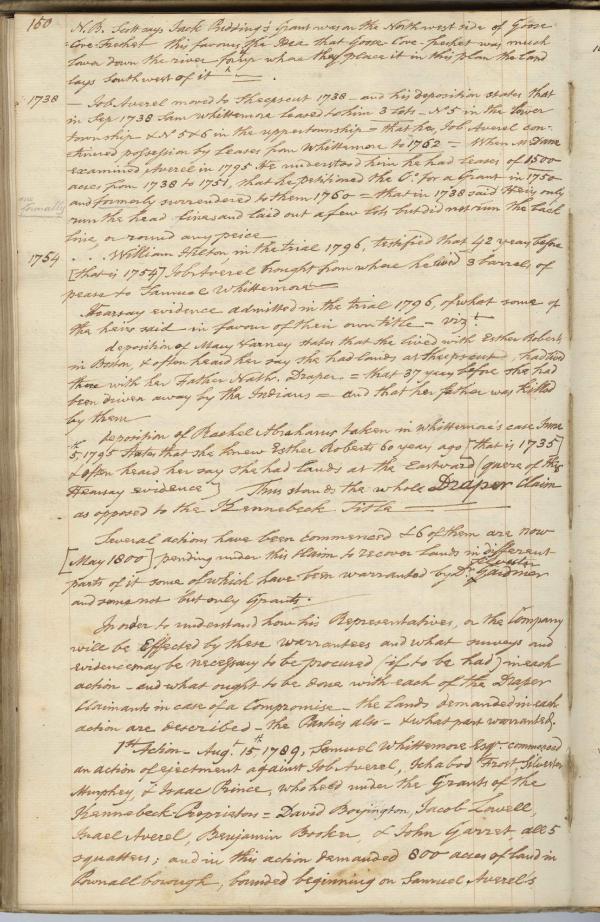 150
N.B. Scott says Jack Pidding's Grant was on the North west side of Goose
Cove Freshet this favours the Idea that Goose-Cove-freshet was much
lower down the river - for up where they place it in this plan the land
lays Southwest of it
1738 — Job Averel moved to Sheepscut 1738 - and his deposition states that
in Sep 1738 Sam Whittemore leased to him 3 lots - No 5 in the lower
township - & No 5 & 6 in the upper township = that he, Job Averel con-
tinued possession by Leases from Whittemore to 1762 = When Mr Dane
examined Averel in 1795 He understood him he had Leases of 1500
acres from 1738 to 1751, that he petitioned the Co. for a Grant in 1750
and formerly surrendered to them 1760 = that in 1738 said Heirs only
formally
run the head lines and laid out a few lots but did not run the back
line, or round any peice
1754 . . . William Hilton in the trial 1796, testified that 42 years before
[that is 1754] Job Averel brought from whare he lived 3 barrels of
pease to Samuel Whittemore
Hearsay evidence admitted in the trial 1796, of what some of
the heirs said in favour of their own title - vizt.
deposition of Mary Varney states that she lived with Esther Roberts
in Boston, & often heard her say she had lands at Sheepscut, had lived
there with her Father Nath. Draper = that 37 years before she had
been driven away by the Indians = and that her father was killed
by them
deposition of Rachel Abrahams taken in Whittemore's case June
5th, 1795 States that she knew Esther Roberts 60 years ago [that is 1735]
& often heard her say she had lands at the Eastward (quere of this
Hearsay evidence) Thus stands the whole Draper Claim
as opposed to the Kennebeck Title
Several actions have been commenced & 6 of them are now
[May 1800] pending under this Claim to recover lands in different
parts of it some of which have been warranted by Dr. Silvester Gardiner
and some not but only Grants.
In order to understand how his Representatives, or the Company
will be Effected by these warrantees and what surveys and
evidence may be necessary to be procured (if to be had) in each
action - and what ought to be done with each of the Draper
Claimants in case of a Compromise - the lands demanded in each
action are described - the Parties also - & what part warranted.
1st Action - Augt. 15th 1789, Samuel Whittemore Esqr. commenced
an action of ejectment against Job Averel, Ichabod Frost, Silvester
Murphey, & Isaac Prince, who held under the Grants of the
Kennebeck Proprietors = David Boyington, Jacob Lowell,
Israel Averel, Benjamin Booker, & John Garret, all 5
squatters; and in this action demanded 800 acres of land in
Pownallborough, bounded beginning on Samuel Averel's